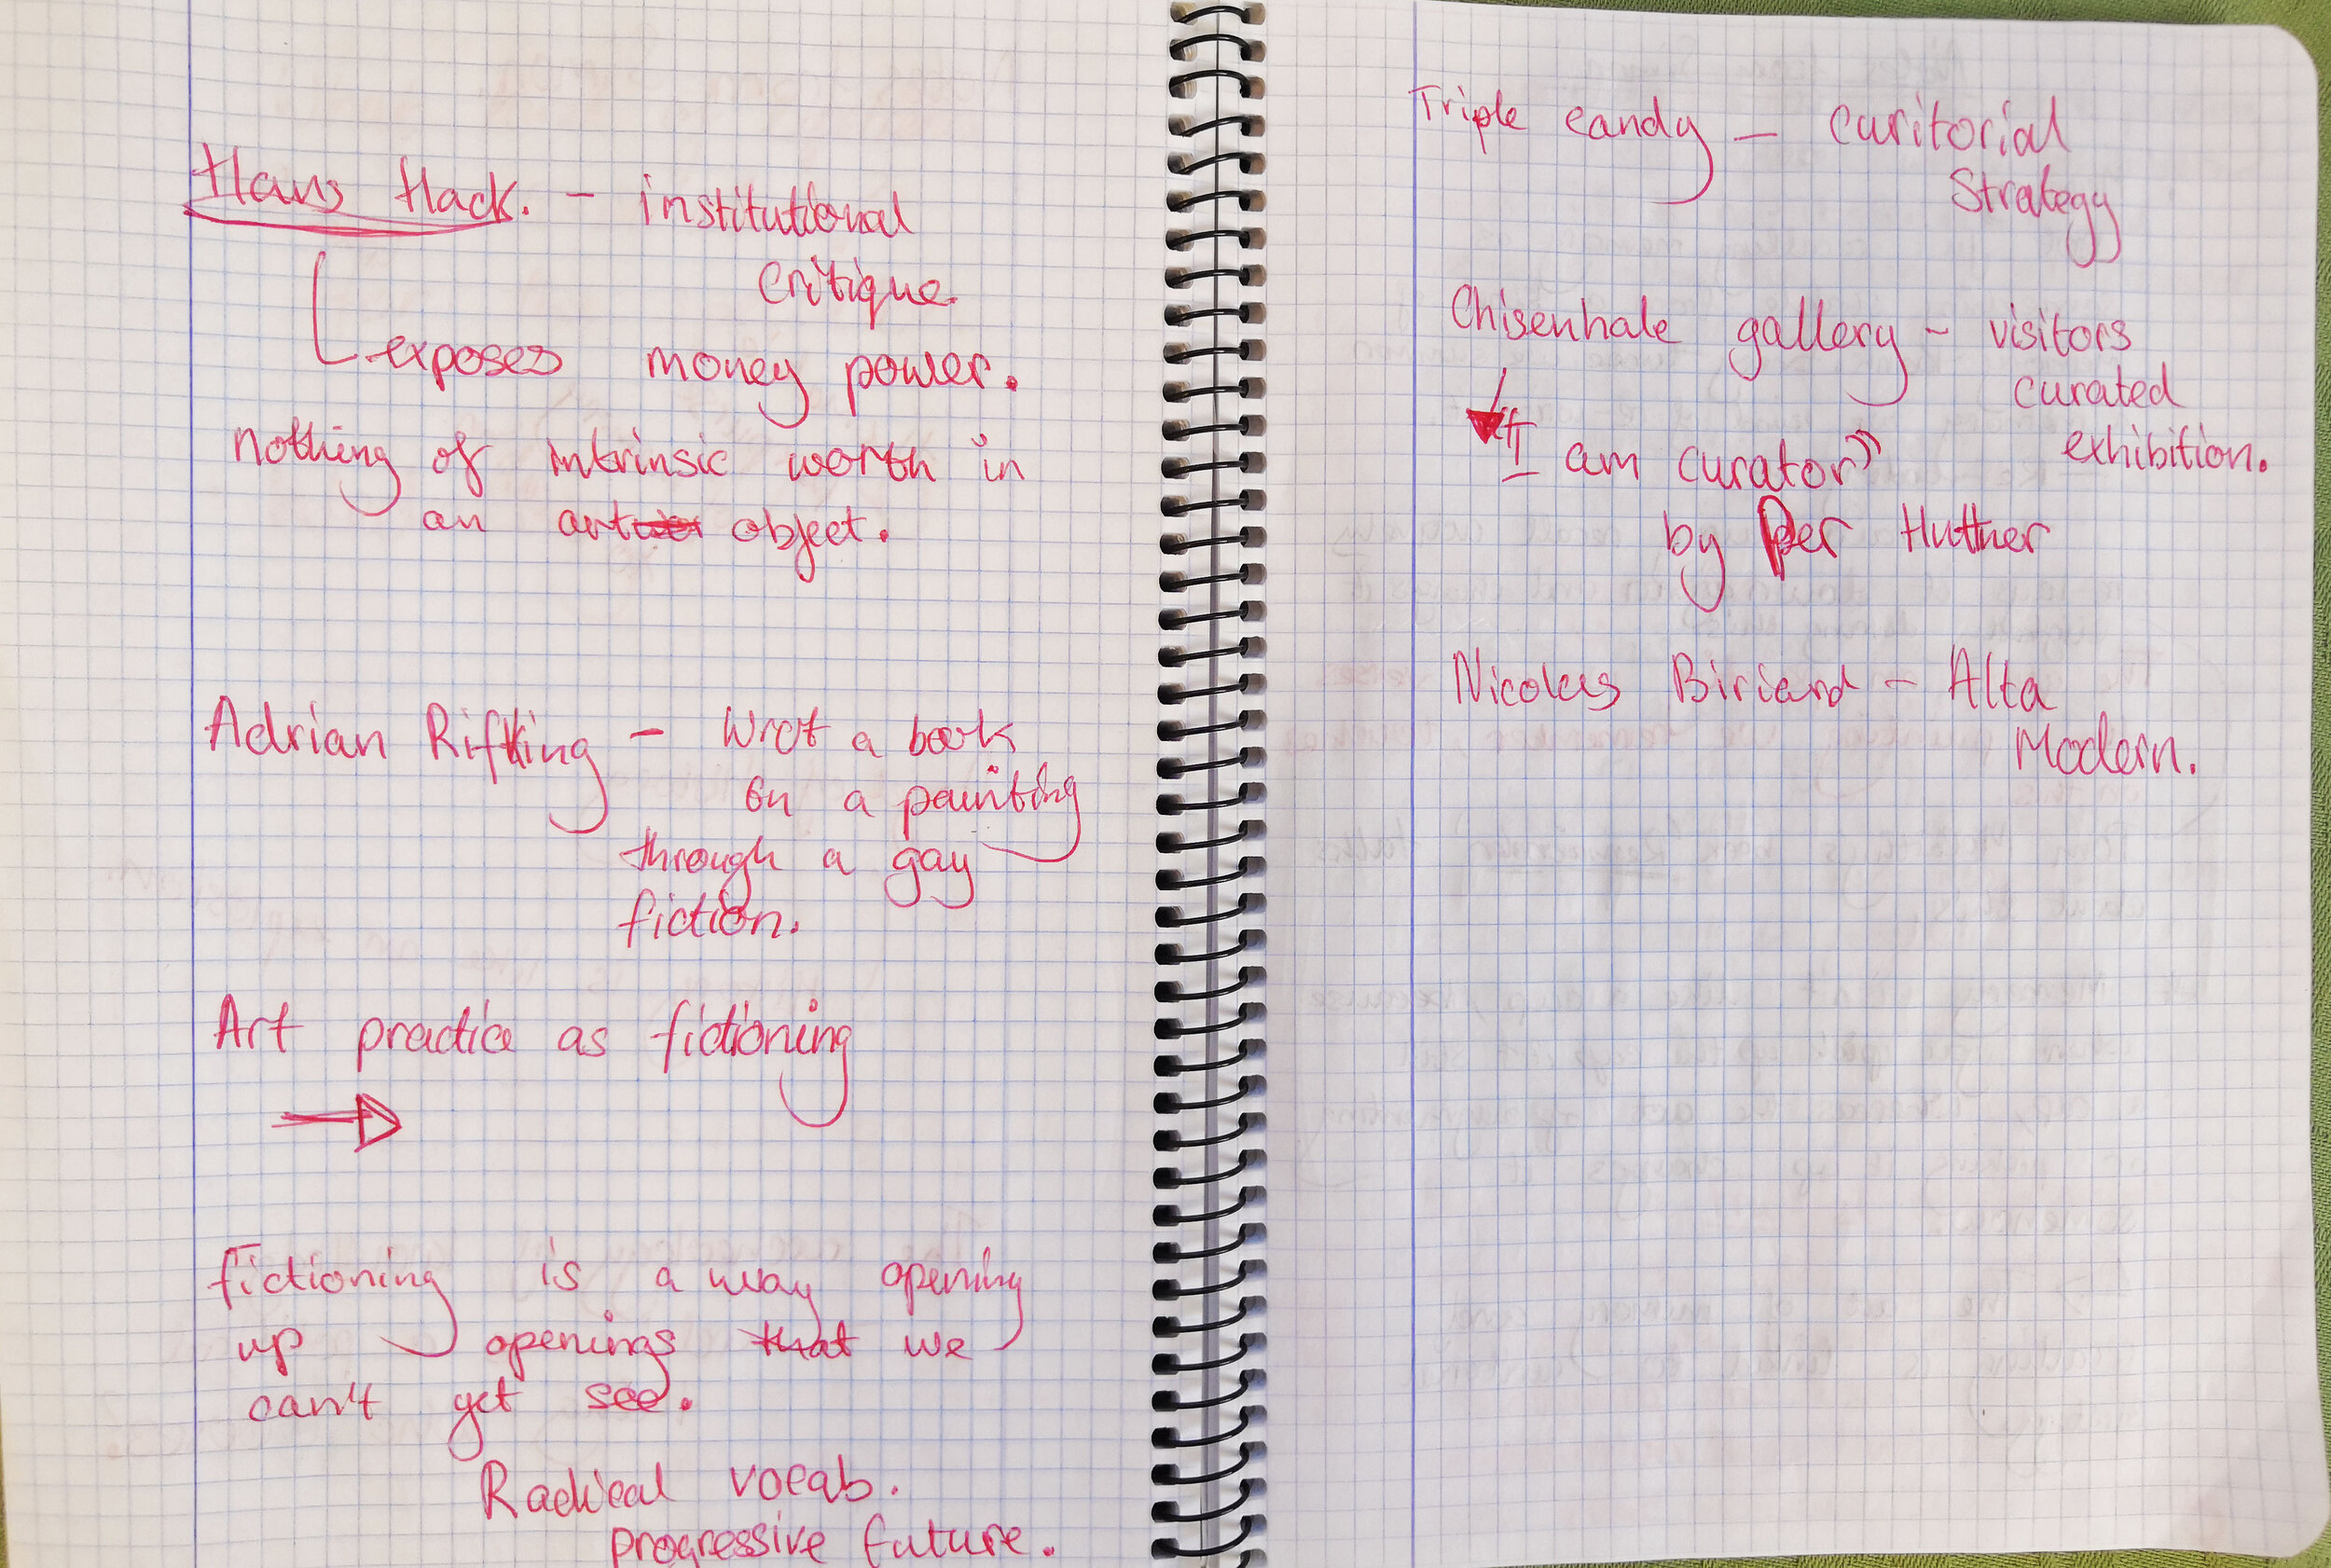 Hans Hack. - institutional
critique.
exposes money power.
nothing of intrinsic worth in
an art object.
Adrian Rifking - Wrot a book
on a painting
through a gay
fiction.
Art practice as fictioning
fictioning is a way opening
up openings that we
can't yet see.
Radical vocab.
progressive future.
Triple candy - curitorial
Strategy
Chisenhale gallery - visitors
curated
exhibition.
"I am curator"
by Per Huttner
Nicolas Biriard - Alta
Modern.